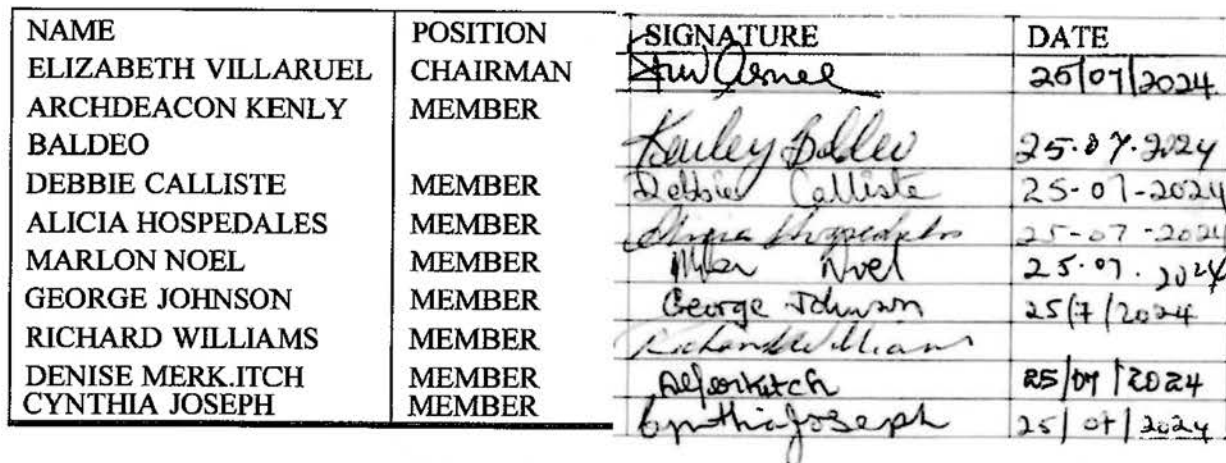 NAME POSITION SIGNATURE DATE
ELIZABETH VILLARUEL CHAIRMAN 25/07/2024
ARCHDEACON KENLY MEMBER
BALDEO Kenley Baldeo 25.07.2024
DEBBIE CALLISTE MEMBER Debbie Calliste 25-07-2024
ALICIA HOSPEDALES MEMBER Hospedales 25-07-2024
MARLON NOEL MEMBER Noel 25.07.2024
GEORGE JOHNSON MEMBER George Johnson 25/7/2024
RICHARD WILLIAMS MEMBER Richard Williams
DENISE MERK.ITCH MEMBER 25/07/2024
CYNTHIA JOSEPH MEMBER Cynthia Joseph 25/07/2024